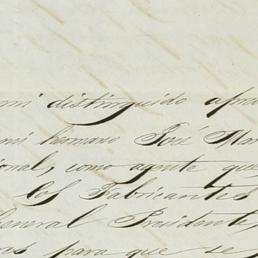 mi distinguido
mi hermano José
como agente que
los Fabricantes
General Presidente
para que se